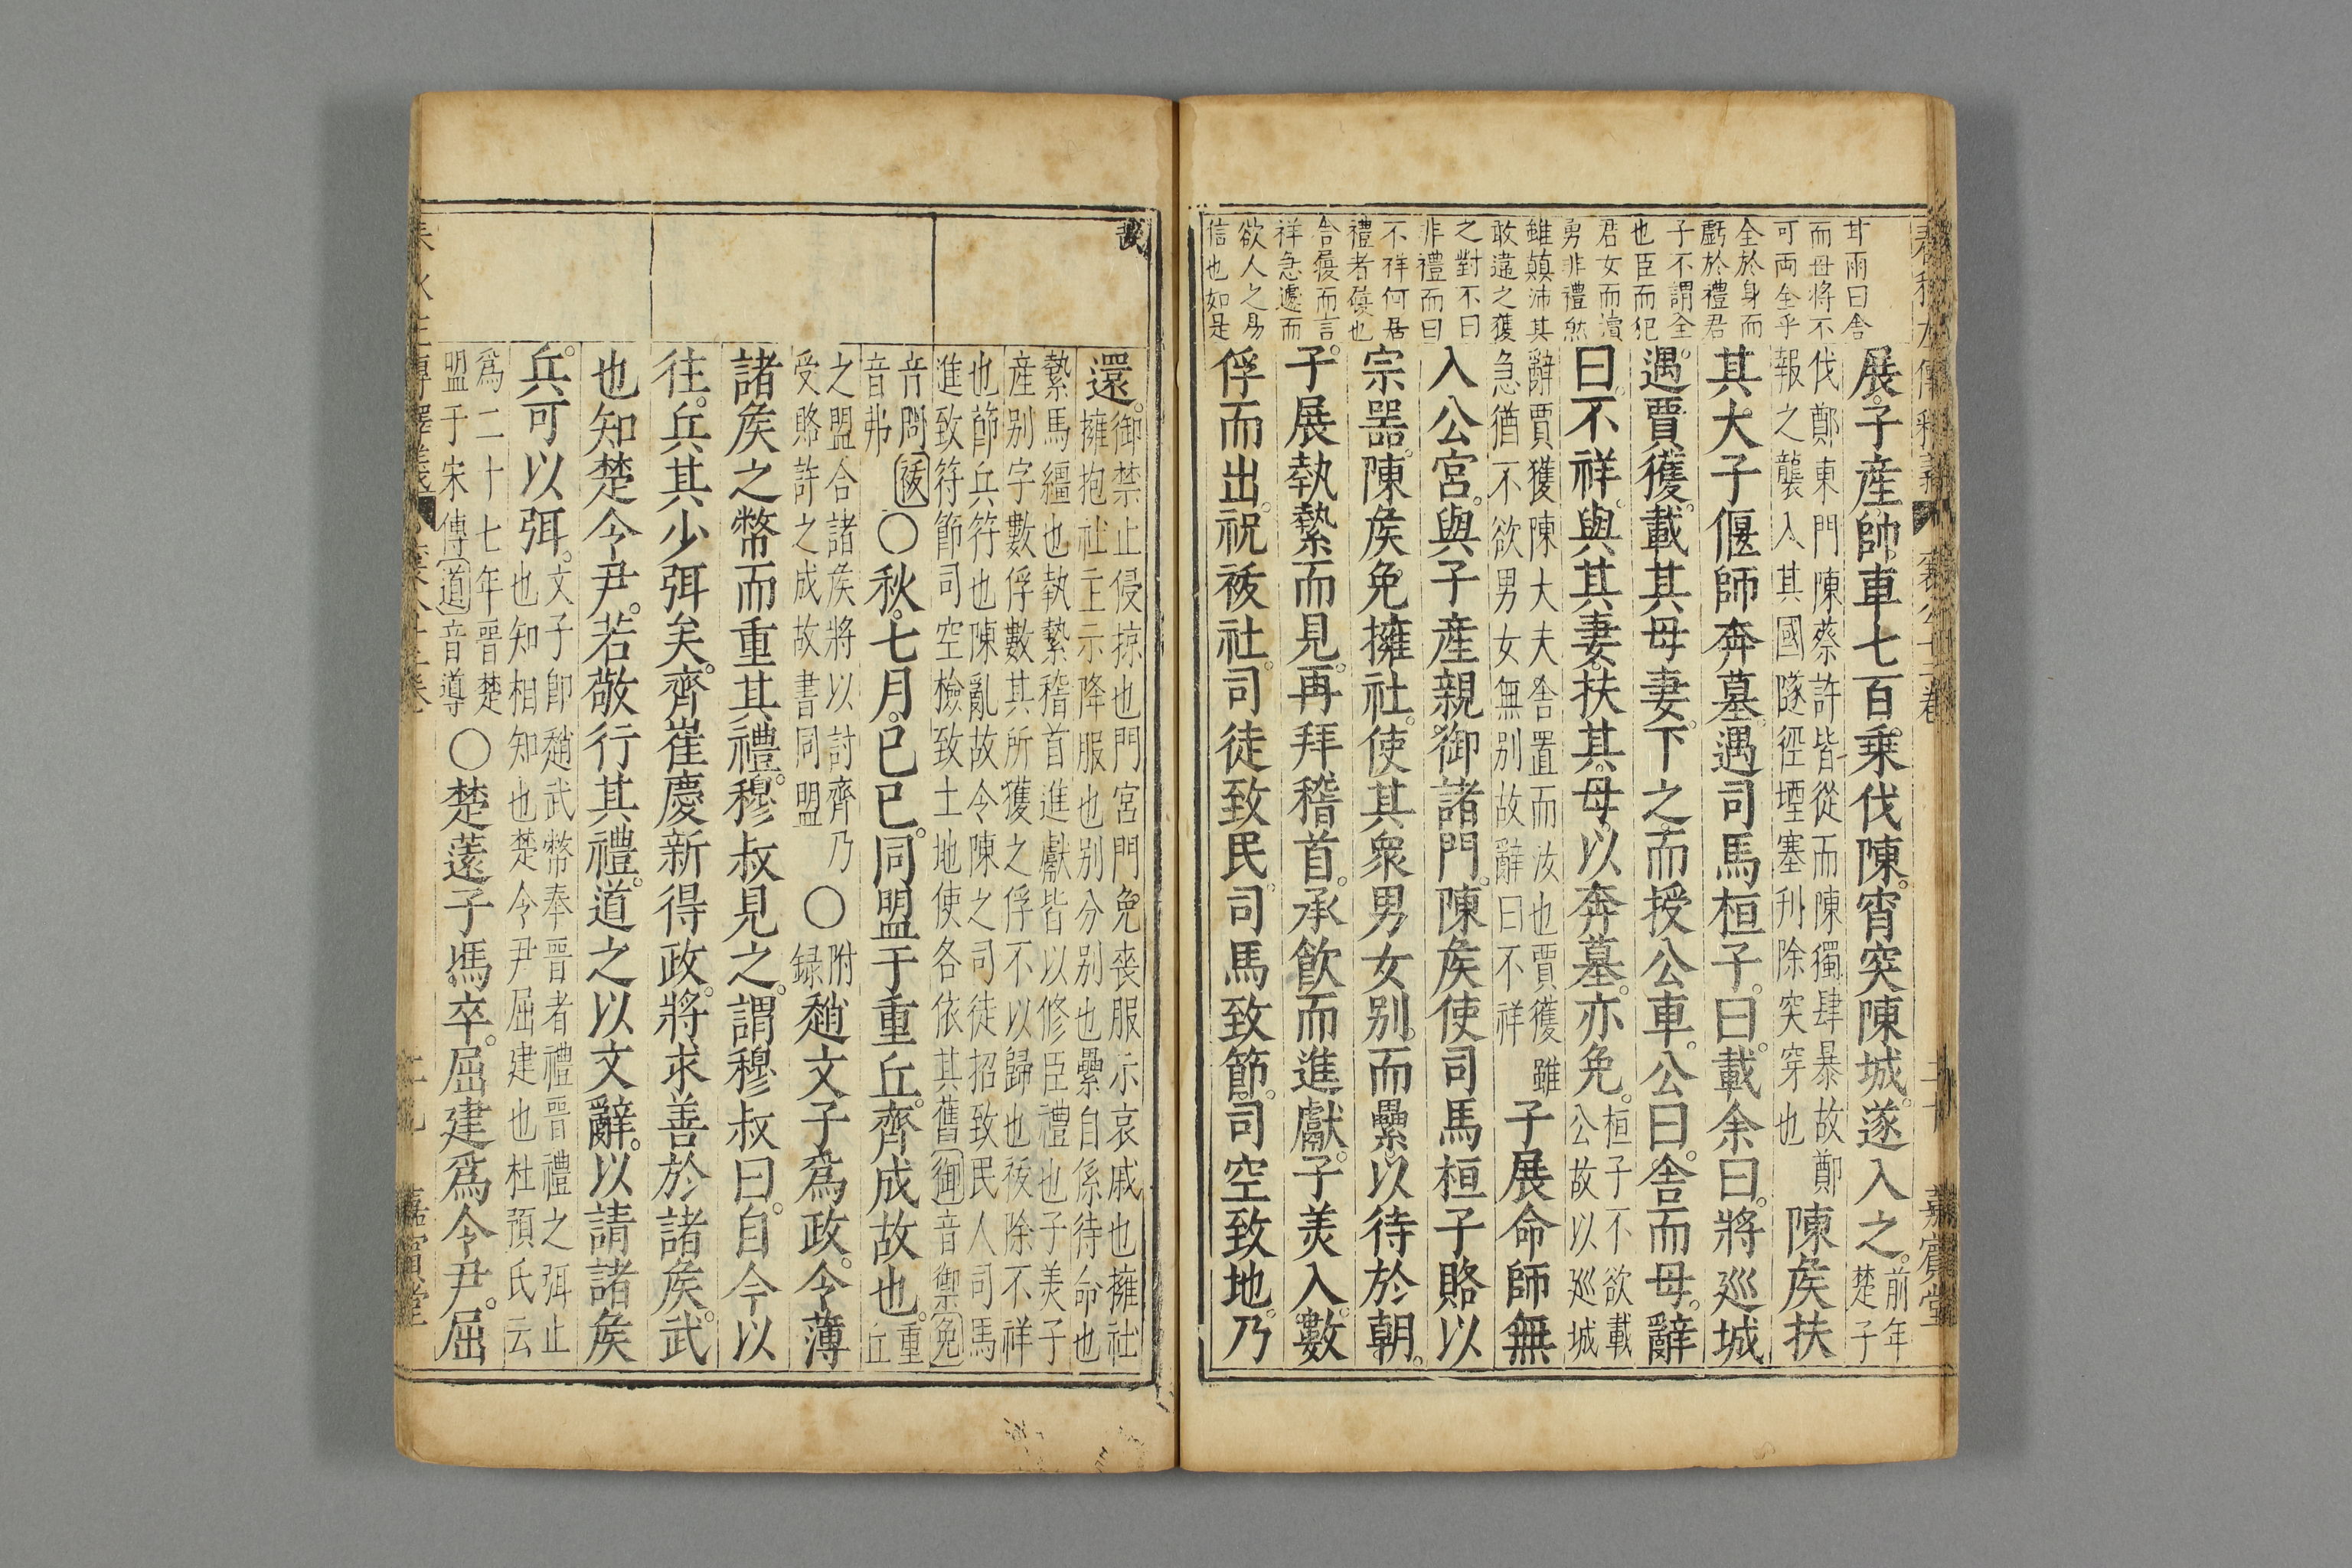 甘雨曰舍
而母將不
可両全乎
全於身而
虧於禮君
子不謂全
也臣而犯
君女而瀆
勇非禮然
雖顛沛其
敢違之獲
之對不曰
非禮而曰
不祥何居
禮者
舍優而言
祥急遽而
欲人之易
信也如是
展。子産。帥車七百乗伐陳。宵突陳城。遂入之。前年楚子
伐鄭東門陳蔡許皆從而陳獨肆暴故鄭
報之襲入其國隧徑堙塞刋除突穿也
陳矦扶
其大子偃師奔墓。遇司馬桓子。曰。載余曰。將巡城
遇。賈獲。載其母妻。下之而授公車。公曰。舍而母。辭
曰。不祥。與其妻。扶其母以奔墓。亦免。桓子不欲載公故以巡城
辭賈獲陳大夫舍置而汝也賈獲雖
急猶不欲男女無别故辭曰不祥
子展命師無
入公宮。與子産親御諸門。陳矦使司馬桓子賂以
宗器。陳矦免。擁社。使其衆男女别。而纍。以待於朝。
子。展執縶而見。再拜稽首。承飲而進獻。子美入。數
俘而出。祝祓社。司徒致民。司馬致節。司空致地。乃
還。
御禁止侵掠也門宮門免喪服示哀戚也擁社
擁抱社主示降服也别分别也纍自係待命也
縶馬繮也執縶稽首進獻皆以修臣禮也子美子
産别字數俘數其所獲之俘不以歸也祓除不祥
也節兵符也陳亂故令陳之司徒招致民人司馬
進致符節司空檢致土地使各依其舊御音禦免
音問祓
音弗
○秋。七月。己巳。同盟于重丘。齊成故也。重丘
之盟合諸矦將以討齊乃
受賂許之成故書同盟
○附録趙文子爲政。令薄
諸矦之幣而重其禮。穆叔見之。謂穆叔曰。自今以
往。兵其少弭矣。齊崔慶新得政。將求善於諸矦。武
也知楚令尹。若敬行其禮。道之以文辭。以請諸矦
兵。可以弭。
文子即趙武幣奉晋者禮晋禮之弭止
也知相知也楚令尹屈建也杜預氏云
爲二十七年晋楚
盟于宋傳道音導
○楚薳子馮。卒。屈建爲令尹。屈